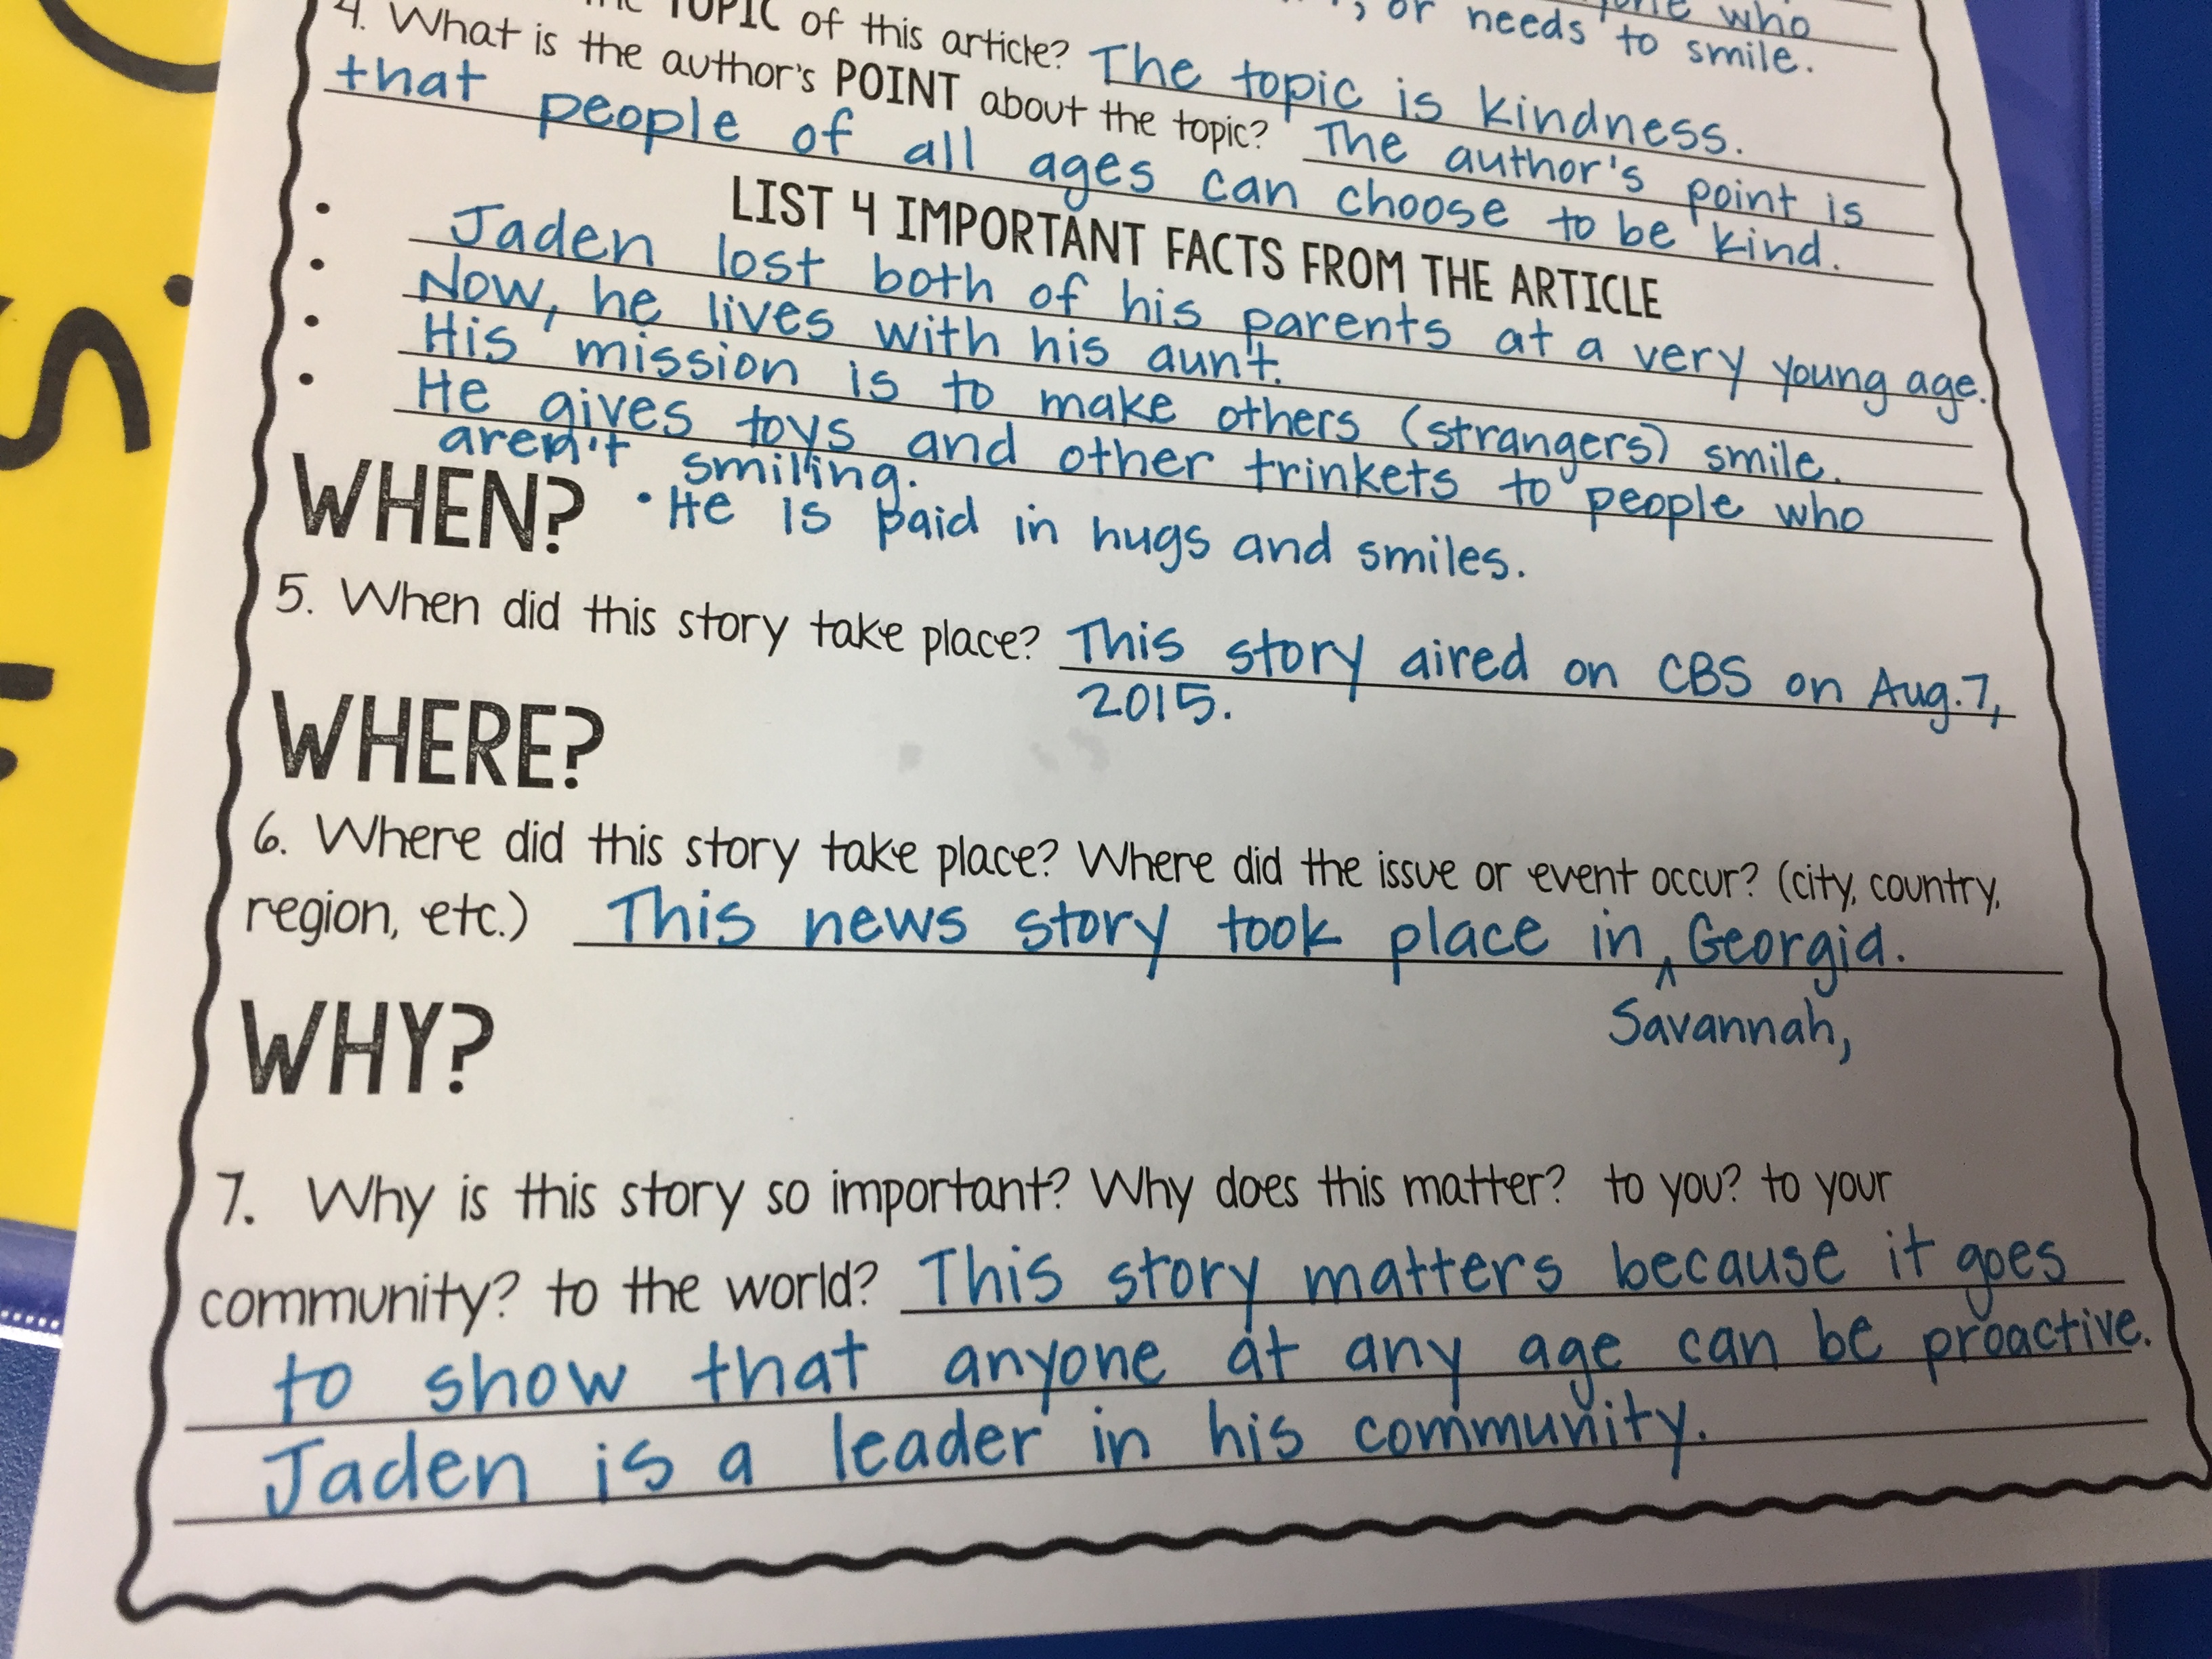 one who
, or needs to smile.
the TOPIC of this article? The topic is kindness.
4. What is the author's POINT about the topic? The author's point is
that people of all ages can choose to be kind.
LIST 4 IMPORTANT FACTS FROM THE ARTICLE
• Jaden lost both of his parents at a very young age.
• Now, he lives with his aunt.
• His mission is to make others (strangers) smile.
• He gives toys and other trinkets to people who
aren't smiling.
WHEN? • He is paid in hugs and smiles.
5. When did this story take place? This story aired on CBS on Aug. 7,
2015.
WHERE?
6. Where did this story take place? Where did the issue or event occur? (city, country,
region, etc.) This news story took place in ^ Georgia.
Savannah,
WHY?
7. Why is this story so important? Why does this matter? to you? to your
community? to the world? This story matters because it goes
to show that anyone at any age can be proactive.
Jaden is a leader in his community.